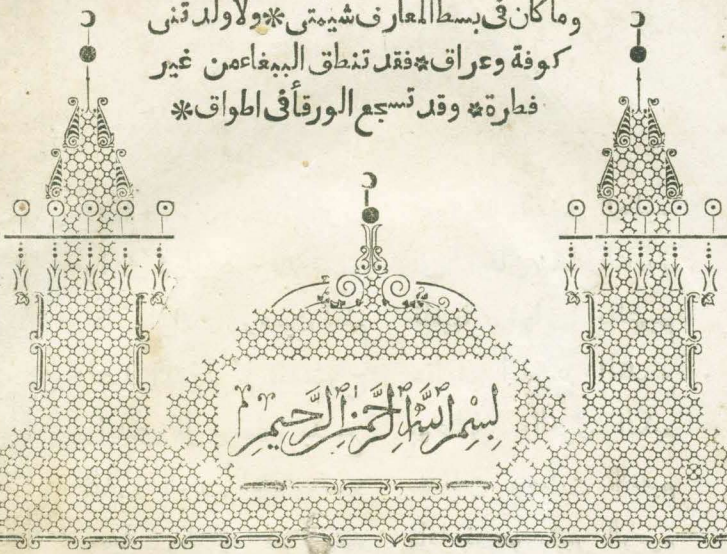 وما كان فى بسط المعارف شيمتى * ولا ولدتنى
كوفة وعراق * فقد تنطق الببغاء من غير
فطرة * وقد تسجع الورقأ فى اطواق *
بِسْمِ اللَّهِ الرَّحْمَنِ الرَّحِيمِ